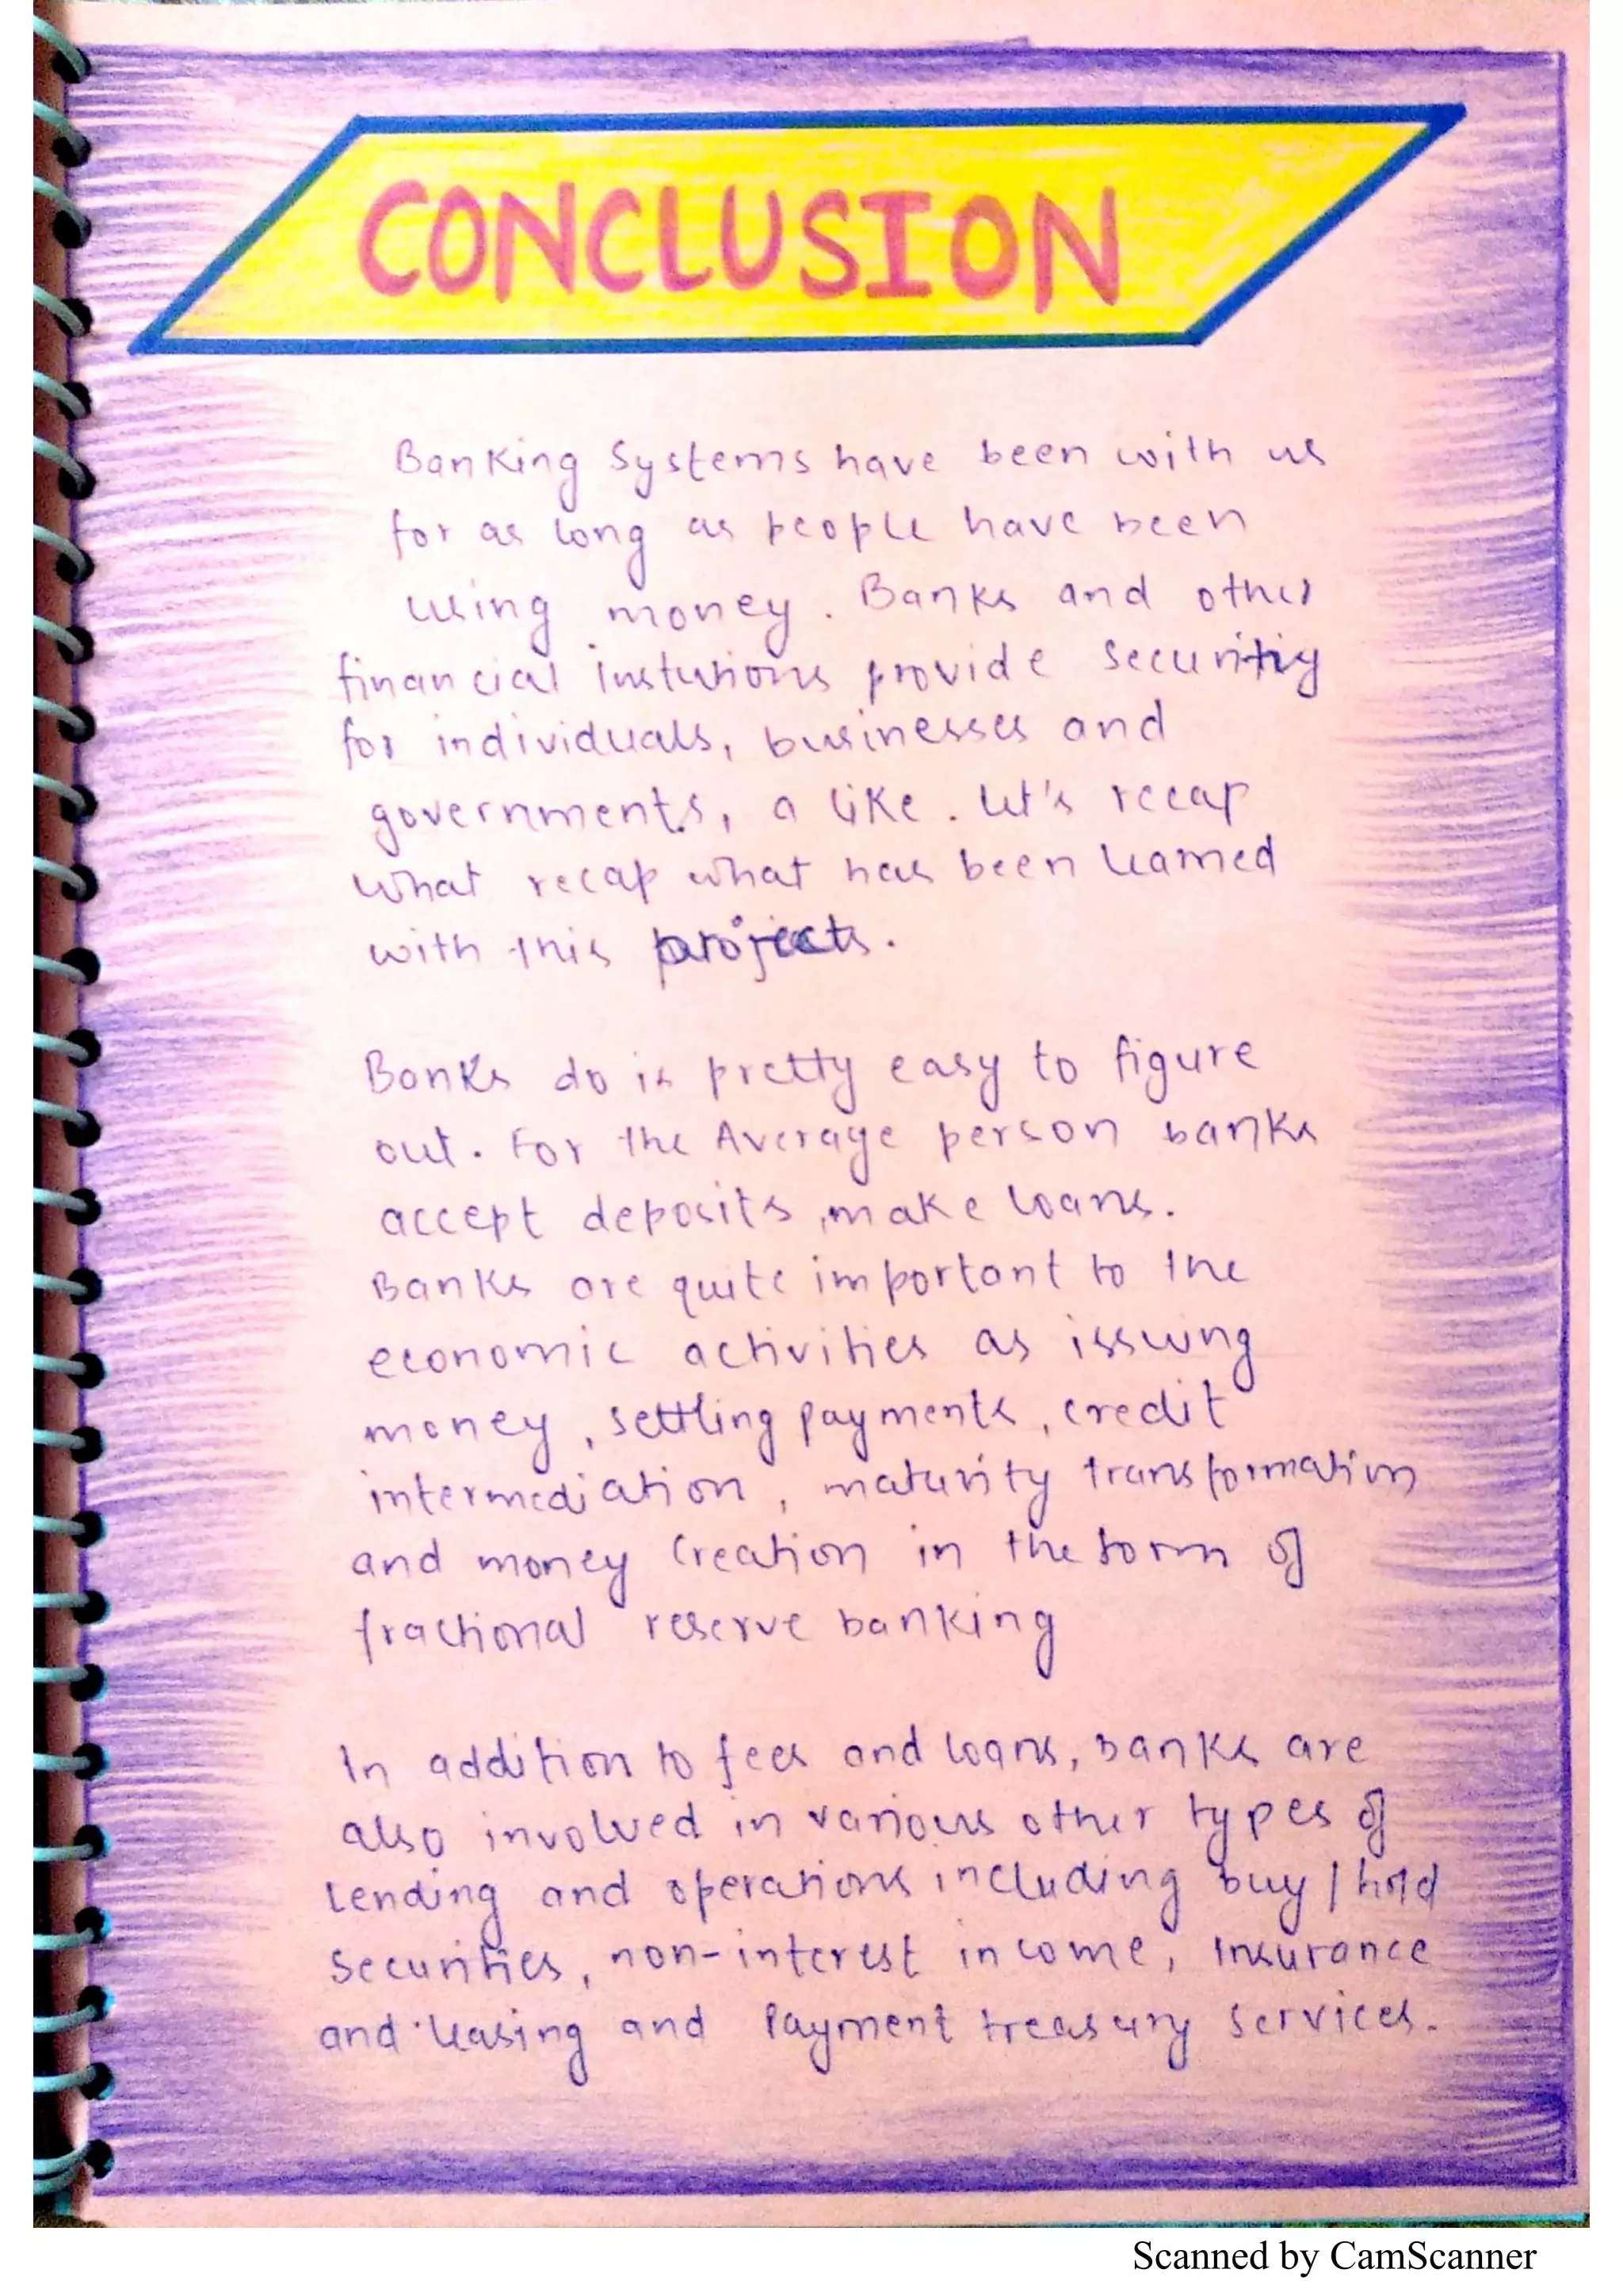 CONCLUSION
Banking Systems have been with us
for as long as people have been
using money. Banks and other
financial Instutions provide Securitiy
for individuals, businesses and
governments, a like. Let's recap
what recap what has been learned
with this projects.
Banks do is pretty easy to figure
out. For the Average person banks
accept deposits, make loans.
Banks are quite important to the
economic activities as issuing
money, settling payments, credit
intermediation, maturity transformation
and money creation in the form of
fractional reserve banking
In addition to fees and loans, banks are
also involved in various other types of
lending and operations including buy/hold
securities, non-interest income, Insurance
and leasing and Payment treasury services.
Scanned by CamScanner